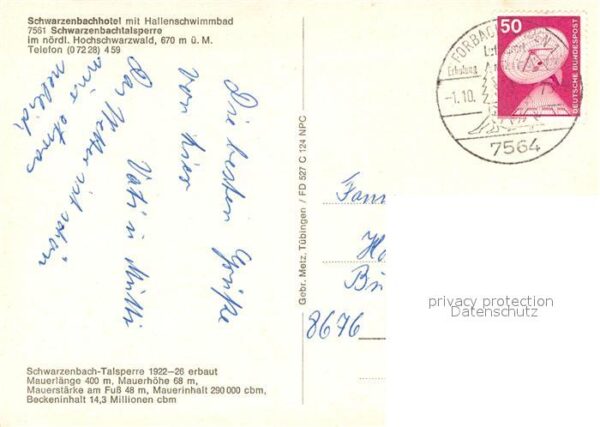 Schwarzenbachhotel mit Hallenschwimmbad
7561 Schwarzenbachtalsperre
im nördl. Hochschwarzwald, 670 m ü. M.
Telefon (0 72 28) 4 59
Die besten Grüße
von hier
Vati u. Mutti
Das Wetter ist schön
nur etwas
neblich
Schwarzenbach-Talsperre 1922–26 erbaut
Mauerlänge 400 m, Mauerhöhe 68 m,
Mauerstärke am Fuß 48 m, Mauerinhalt 290 000 cbm,
Beckeninhalt 14,3 Millionen cbm
Gebr. Metz, Tübingen / FD 527 C 124 NPC
FORBACH
Erholung
-1.10.
7564
50
DEUTSCHE BUNDESPOST
Fam
8676
privacy protection
Datenschutz